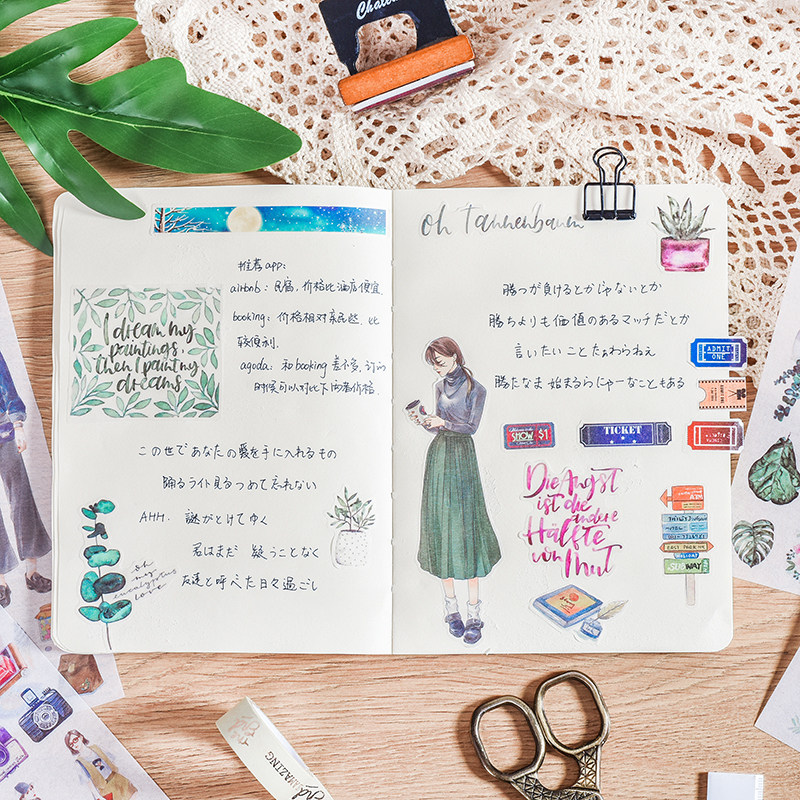 推荐app:
airbnb: 民宿,价格比酒店便宜
booking: 价格相对亲民些,比
较便利.
agoda: 和booking差不多,订的
时候可以对比下两者价格.
I dream my
paintings,
then I paint my
dreams
この世であなたの愛を手に入れるもの
踊るライト見るつめて忘れない
AHH. 謎がとけてゆく
君はまだ 疑うことなく
友達と呼べた日々過ごし
oh
my
eucalyptus
love
oh Tannenbaum
勝つが負けるとかじゃないとか
勝ちよりも価値のあるマッチだとか
言いたいことたぁわらねえ
勝たなま 始まるらにゃーなこともある
ADMIT
ONE
SHOW $1
TICKET
Die Angst
ist die
andere
Hälfte
von Mut
SUBWAY
AMAZING